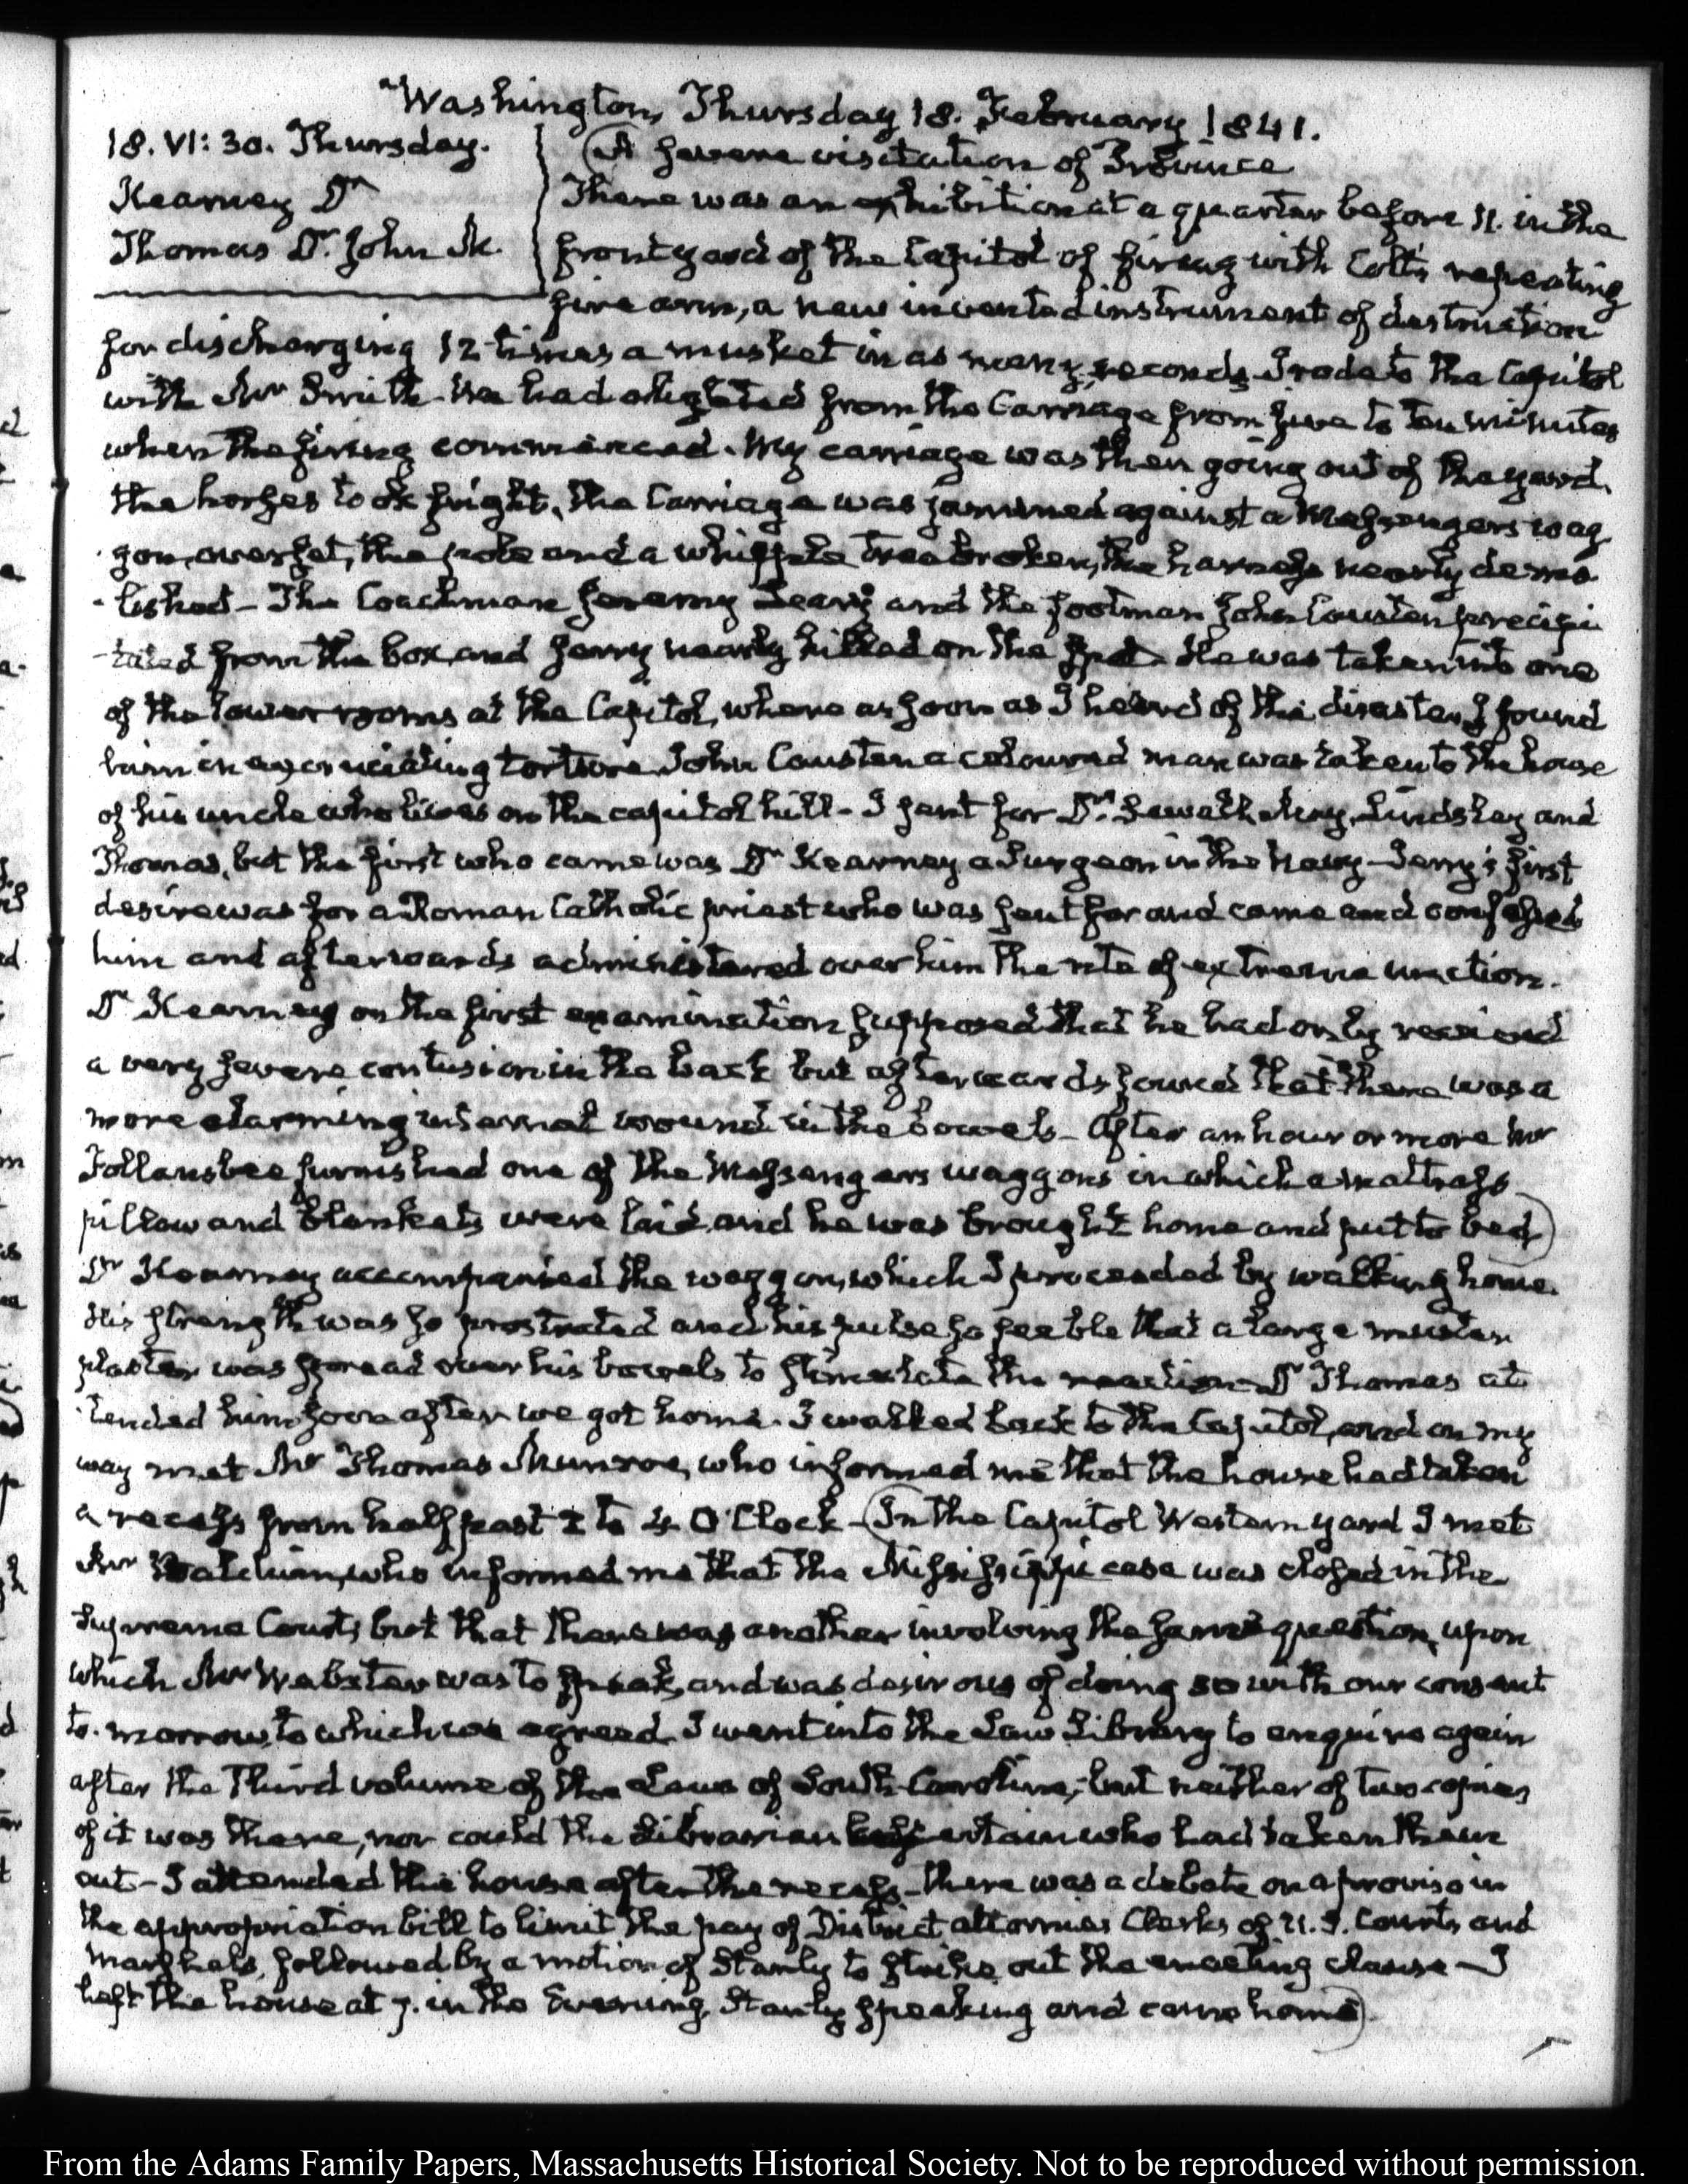 Washington, Thursday 18. February 1841.
18. VI: 30. Thursday.
Kearney Dr
Thomas Dr. John M.
A severe visitation of Providence
There was an exhibition at a quarter before 11. in the
front yard of the Capitol of firing with Colt's repeating
fire arm, a new invented instrument of destruction
for discharging 12 times a musket in as many seconds I rode to the Capitol
with Mr Smith. We had alighted from the Carriage from five to ten minutes
when the firing commenced. My carriage was then going out of the yard.
the horses took fright, the Carriage was jammed against a Messengers wag
gon, overset, the pole and a whipple tree broken, the harness nearly demo
lished – The Coachman Jeremy Leary and the footman John Causten precipi
tated from the box, and Jerry nearly killed on the spot. He was taken into one
of the lower rooms at the Capitol, where as soon as I heard of the disaster I found
him in excruciating torture. John Causten a coloured man was taken to the house
of his uncle who lives on the capitol hill – I sent for Drs. Sewall, May, Lindsley and
Thomas, but the first who came was Dr Kearney a Surgeon in the Navy – Jerry's first
desire was for a Roman Catholic priest who was sent for and came and confessed
him and afterwards administered over him the rite of extreme unction.
Dr Kearney on the first examination supposed that he had only received
a very severe contusion in the back but afterwards found that there was a
more alarming internal wound in the bowels – After an hour or more Mr
Follansbee furnished one of the Messengers waggons in which a mattrass
pillow and blankets were laid, and he was brought home and put to bed)
Dr Kearney accompanied the waggon, which I preceeded by walking home.
His strength was so prostrated and his pulse so feeble that a large mustard
plaster was spread over his bowels to stimulate the reaction – Dr Thomas at
tended him soon after we got home. I walked back to the Capitol, and on my
way met Mr Thomas Munroe, who informed me that the house had taken
a recess from half past 2 to 4 O'Clock – (In the Capitol Western yard I met
Mr Baldwin, who informed me that the Mississippi case was closed in the
Supreme Court, but that there was another involving the same question, upon
which Mr Webster was to speak, and was desirous of doing so with our consent
to-morrow, to which we agreed. I went into the Law Library to enquire again
after the Third volume of the Laws of South-Carolina; but neither of two copies
of it was there, nor could the Librarian ascertain who had taken them
out – I attended the house after the recess – there was a debate on a proviso in
the appropriation bill to limit the pay of District attornies Clerks of U.S. Courts and
Marshals, followed by a motion of Stanly to strike out the enacting clause – I
left the house at 7. in the Evening, Stanly speaking and came home)
From the Adams Family Papers, Massachusetts Historical Society. Not to be reproduced without permission.